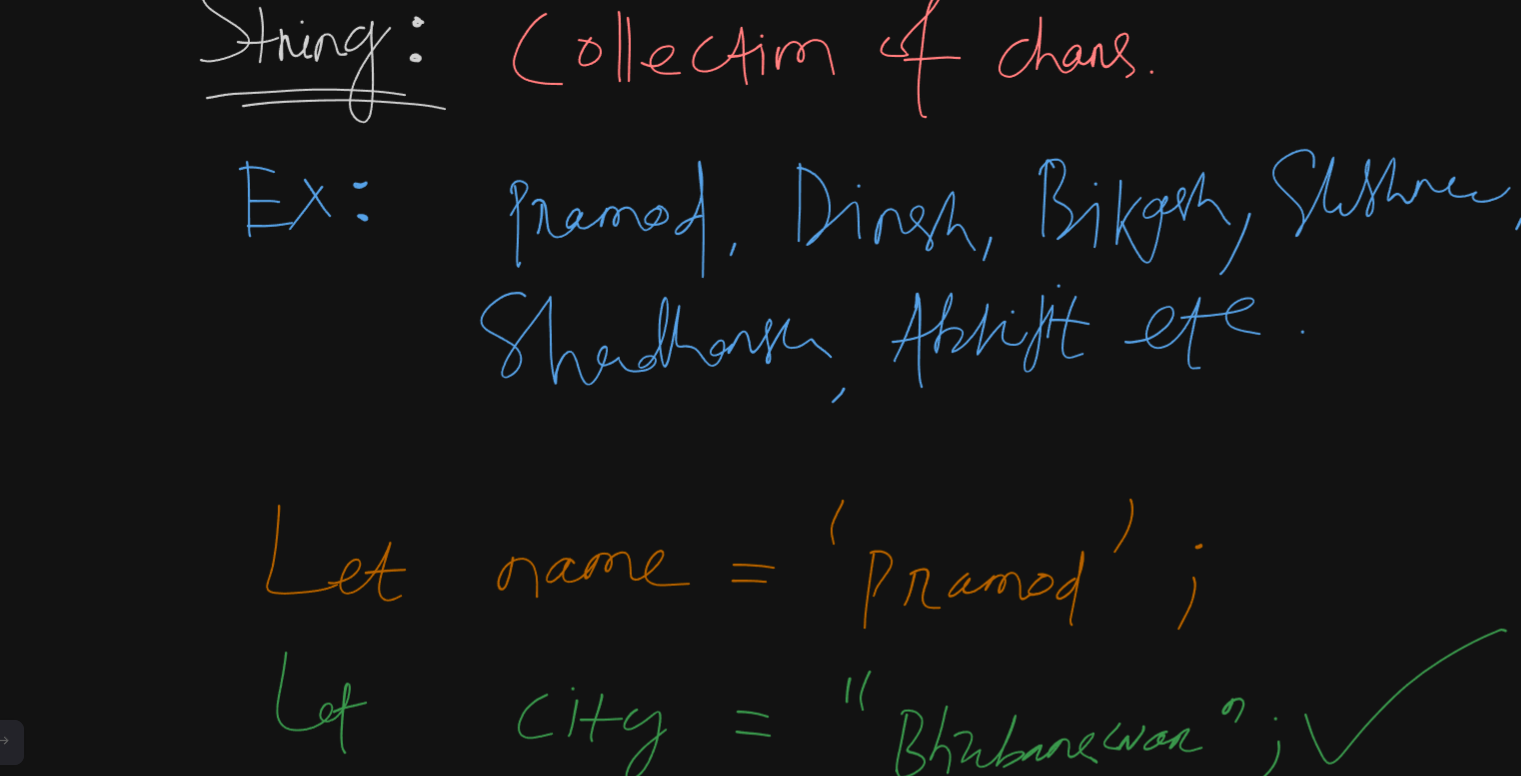 String: Collection of chars.
Ex: Pramod, Dinesh, Bikash, Sushree,
Abhijit etc.
Let name = 'Pramod';
Let city = "Bhubaneswar";